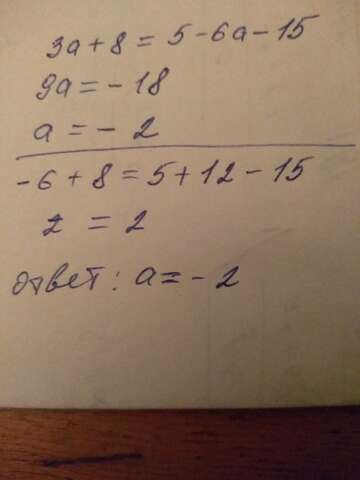 3a + 8 = 5 - 6a - 15
9a = - 18
a = - 2
-6 + 8 = 5 + 12 - 15
2 = 2
ответ: a = - 2